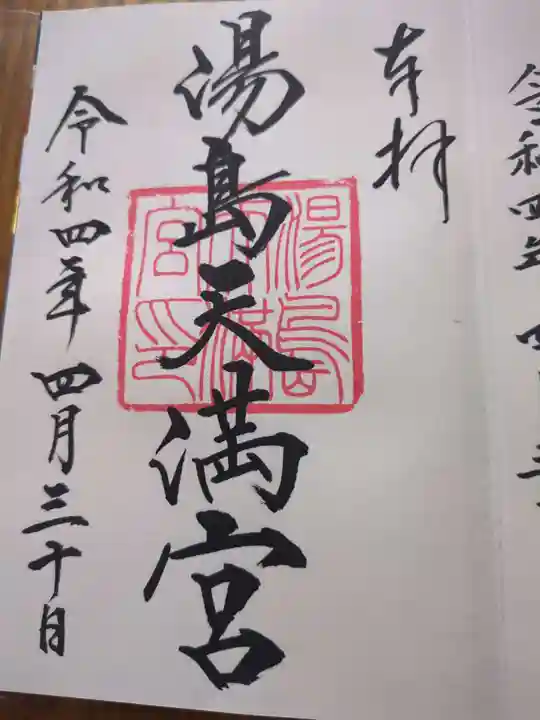 奉拝
湯島天満宮
湯島天満宮印
令和四年四月三十日
令和四年